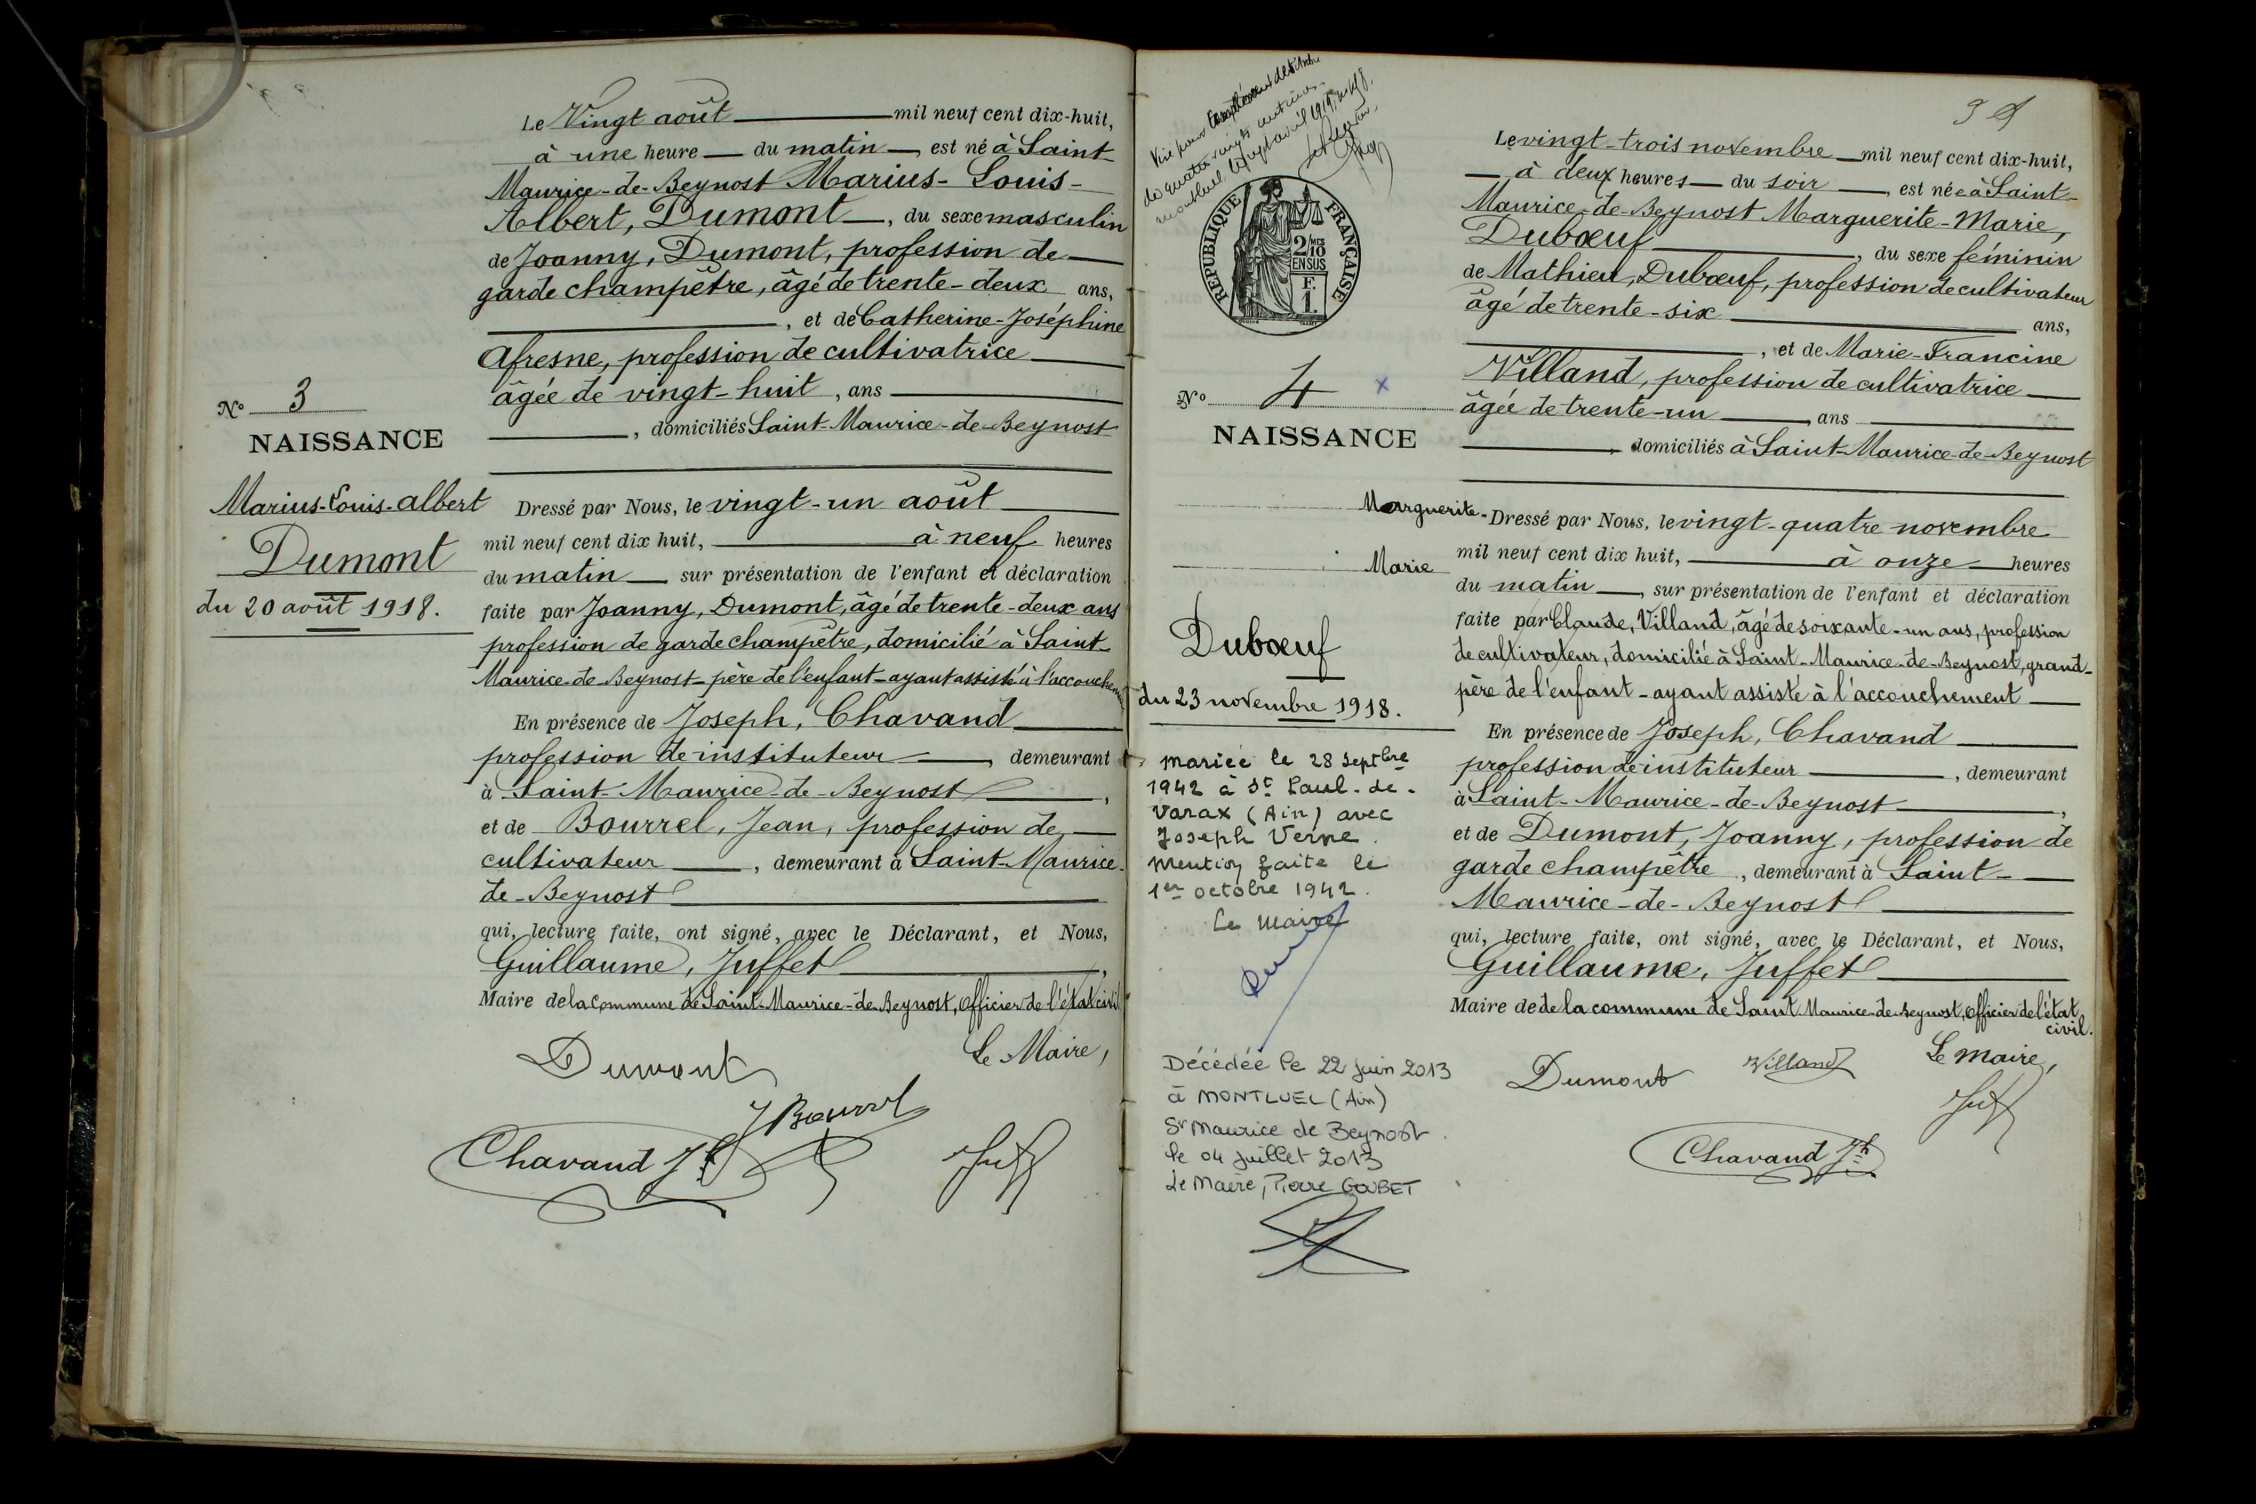 Le Vingt août mil neuf cent dix-huit,
à une heure du matin, est né à Saint-
Maurice-de-Beynost Marius-Louis-
Albert, Dumont, du sexe masculin
de Joanny, Dumont, profession de
garde champêtre, âgé de trente-deux ans,
, et de Catherine-Joséphine
Afresne, profession de cultivatrice
âgée de vingt-huit, ans
, domiciliés Saint-Maurice-de-Beynost
No 3
NAISSANCE
Marius-Louis-Albert
Dumont
du 20 août 1918.
Dressé par Nous, le vingt-un août
mil neuf cent dix huit, à neuf heures
du matin sur présentation de l'enfant et déclaration
faite par Joanny, Dumont, âgé de trente-deux ans
profession de garde champêtre, domicilié à Saint-
Maurice-de-Beynost-père de l'enfant-ayant assisté à l'accouchement
En présence de Joseph, Chavand
profession de instituteur, demeurant
à Saint-Maurice-de-Beynost,
et de Bourrel, Jean, profession de
cultivateur, demeurant à Saint-Maurice-
de-Beynost
qui, lecture faite, ont signé, avec le Déclarant, et Nous,
Guillaume, Juffet,
Maire de la commune de Saint-Maurice-de-Beynost, officier de l'état civil
Le Maire,
Dumont
J Bourrel
Chavand Jh
Juff
3
Visé pour
de quatre vingts centimes
Montluel le avril 1919
RÉPUBLIQUE FRANÇAISE
2 MES
10
EN SUS
F.
1.
No 4 x
NAISSANCE
Marguerite-
Marie
Dubœuf
du 23 novembre 1918.
mariée le 28 septbre
1942 à St Paul-de-
Varax (Ain) avec
Joseph Verne.
Mention faite le
1er octobre 1942.
Le Maire
Décédée le 22 juin 2013
à MONTLUEL (Ain)
St Maurice de Beynost
le 04 juillet 2013
Le Maire, Pierre GOUBET
Le vingt-trois novembre mil neuf cent dix-huit,
à deux heures du soir, est née à Saint-
Maurice-de-Beynost Marguerite-Marie,
Dubœuf, du sexe féminin
de Mathieu, Dubœuf, profession de cultivateur
âgé de trente-six ans,
, et de Marie-Francine
Villand, profession de cultivatrice
âgée de trente-un, ans
, domiciliés à Saint-Maurice-de-Beynost
Dressé par Nous, le vingt-quatre novembre
mil neuf cent dix huit, à onze heures
du matin, sur présentation de l'enfant et déclaration
faite par Claude, Villand, âgé de soixante-un ans, profession
de cultivateur, domicilié à Saint-Maurice-de-Beynost, grand-
père de l'enfant-ayant assisté à l'accouchement
En présence de Joseph, Chavand
profession de instituteur, demeurant
à Saint-Maurice-de-Beynost,
et de Dumont, Joanny, profession de
garde champêtre, demeurant à Saint-
Maurice-de-Beynost
qui, lecture faite, ont signé, avec le Déclarant, et Nous,
Guillaume, Juffet
Maire de de la commune de Saint Maurice-de-Beynost, officier de l'état
civil.
Le Maire,
Dumont
Villand
Juff
Chavand Jh